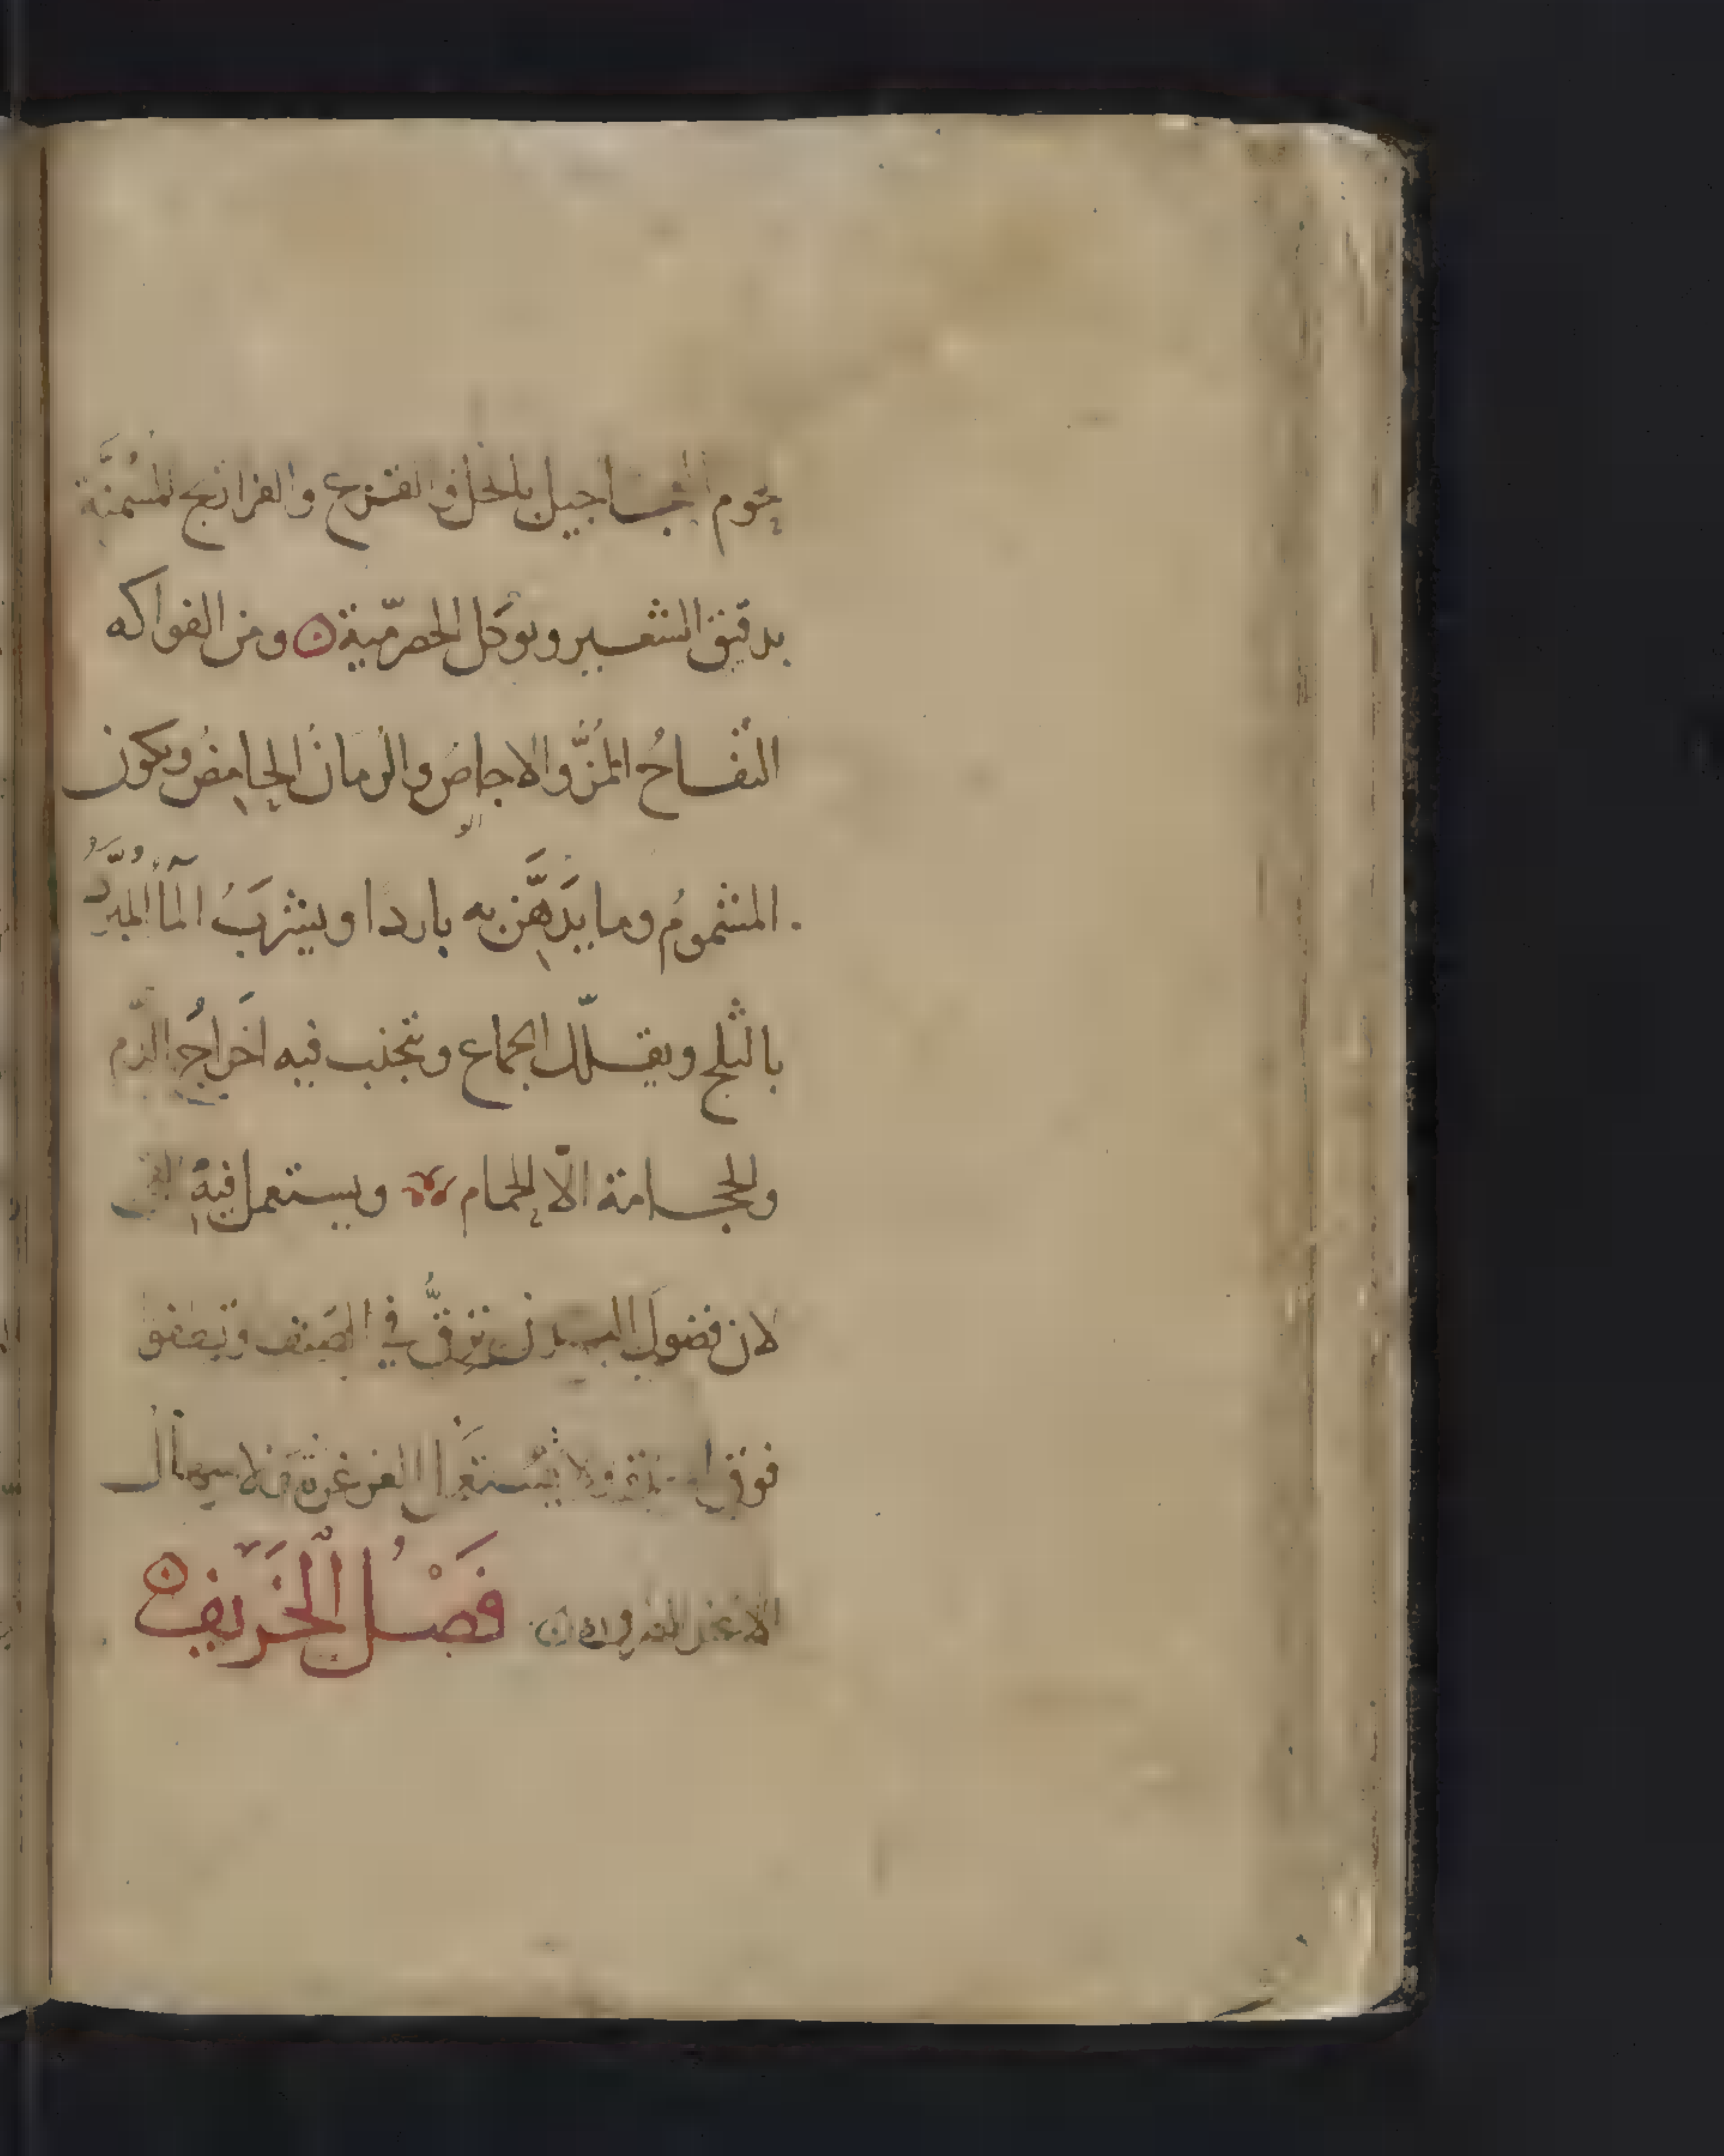 لحوم العجاجيل بالخل والقرع والفراريج المسمنة
بدقيق الشعير ويوكل الحصرمية ومن الفواكه
التفاح المُزّ والاجاص والرمان الحامض ويكون
المشموم وما يدهن به باردا ويشرب المآ المبرّد
بالثلج ويقلل الجماع وتجنب فيه اخراج الدم
والحجامة الّا الحمام ويستعمل فيه القى
لان فضول البدن ترقّ في الصيف وتطفو
فوق ولا يستعمل الغرغرة ولا
فَصْلُ الْخَرِيف